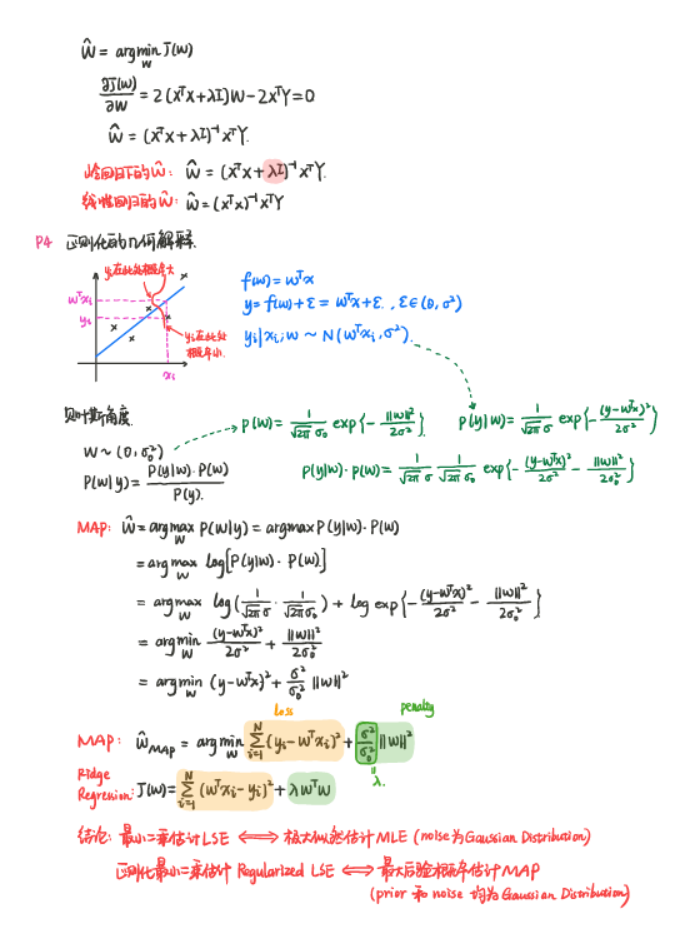 ŵ = argmin_w J(w)
∂J(w)/∂w = 2(XᵀX+λI)W − 2XᵀY = 0
ŵ = (XᵀX+λI)⁻¹XᵀY.
岭回归下的ŵ: ŵ = (XᵀX+λI)⁻¹XᵀY.
线性回归的ŵ: ŵ = (XᵀX)⁻¹XᵀY
P4 正则化的几何解释.
yᵢ在此处概率大
wᵀxᵢ
yᵢ
yᵢ在此处概率小.
xᵢ
f(w) = wᵀx
y = f(w)+ε = wᵀx+ε., ε∈(0, σ²)
yᵢ|xᵢ;w ~ N(wᵀxᵢ, σ²).
贝叶斯角度.
w ~ (0, σ₀²)
P(w|y) = P(y|w)·P(w) / P(y).
P(w) = 1/(√2π σ₀) exp{−‖w‖²/2σ²}. P(y|w) = 1/(√2π σ) exp{−(y−wᵀx)²/2σ²}
P(y|w)·P(w) = 1/(√2π σ) 1/(√2π σ₀) exp{−(y−wᵀx)²/2σ² − ‖w‖²/2σ₀²}
MAP: ŵ = argmax_w P(w|y) = argmax P(y|w)·P(w)
= argmax_w log[P(y|w)·P(w)]
= argmax_w log(1/(√2π σ)·1/(√2π σ₀)) + log exp{−(y−wᵀx)²/2σ² − ‖w‖²/2σ₀²}
= argmin_w (y−wᵀx)²/2σ² + ‖w‖²/2σ₀²
= argmin_w (y−wᵀx)² + σ²/σ₀² ‖w‖²
loss penalty
MAP: ŵ_MAP = argmin_w Σᵢ₌₁ᴺ (yᵢ−wᵀxᵢ)² + σ²/σ₀² ‖w‖²
‖
λ.
Ridge Regression: J(w) = Σᵢ₌₁ᴺ (wᵀxᵢ−yᵢ)² + λwᵀw
结论: 最小二乘估计LSE ⟺ 极大似然估计MLE (noise为Gaussian Distribution)
正则化最小二乘估计 Regularized LSE ⟺ 最大后验概率估计MAP
(prior 和 noise 均为Gaussian Distribution)